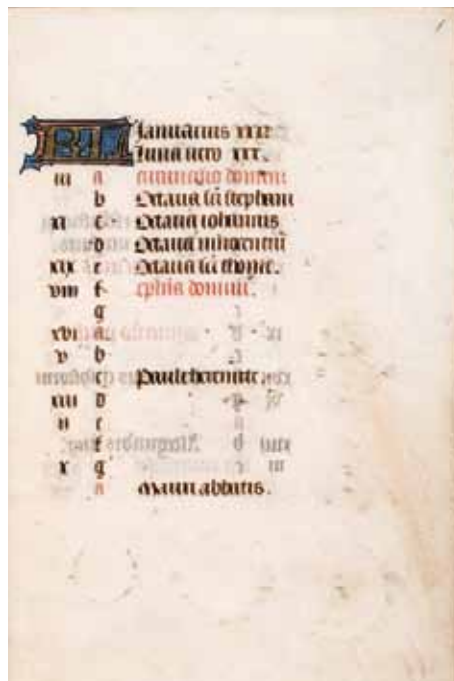 KL Januarius xxxi
luna vero xxx.
iii a circumcisio domini
b Octaua sci stephani
xi c Octaua iohannis
d Octaua innocentū
xix e Octaua sci thome.
viii f ephia domini.
g
xvi a
v b
c Pauli heremite.
xiii d
ii e
f
x g
a Mauri abbatis.